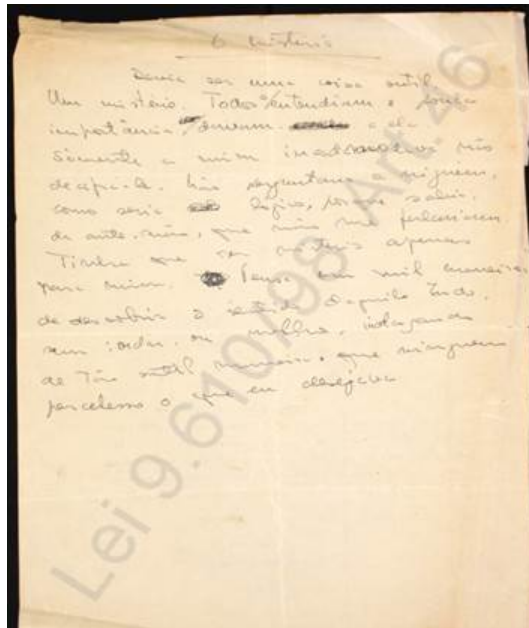 O mistério
Devia ser uma coisa sutil.
Um mistério. Todos entendiam e pouca
importância, davam a ela
Sòmente a mim não
decifrá-la. Não perguntava a ninguém,
como seria lógico, porque sabia,
de ante-mão, que não me
Tinha que ser mistério apenas
para mim. Pensei em mil maneiras
de descobrir o sentido daquilo tudo,
sem ou melhor, indagando
de tão sutil maneira, que ninguém
percebesse o que eu desejava
Lei 9.610/98 Art.46